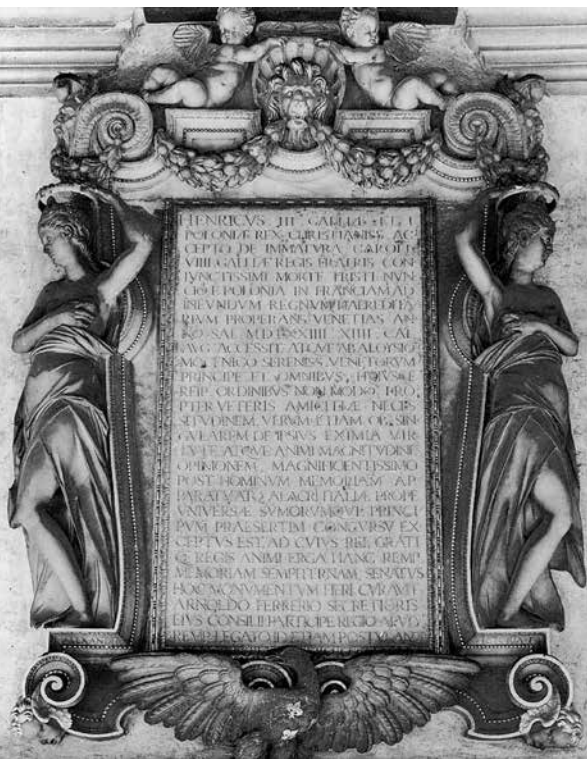 HENRICVS III GALLIÆ ET I
POLONIÆ REX CHRISTIANISS. AC
CEPTO DE IMMATVRA CAROLI
VIIII GALLIÆ REGIS FRATRIS CON
IVNCTISSIMI MORTE TRISTI NVN
CIO E POLONIA IN FRANCIAM AD
INEVNDVM REGNVM HAEREDITA
RIVM PROPERANS VENETIAS AN
NO SAL. M.D.LXXIIII XIIII CAL.
AVG. ACCESSIT ATQVE AB ALOYSIO
MOCENIGO SERENISS. VENETORVM
PRINCIPE ET OMNIBVS HVIVSCE
REIP. ORDINIBVS NON MODO PRO
PTER VETERIS AMICITIÆ NECES
SITVDINEM, VERVM ETIAM OB SIN
GVLAREM DE IPSIVS EXIMIA VIR
TVTE ATQVE ANIMI MAGNITVDINE
OPINIONEM, MAGNIFICENTISSIMO
POST HOMINVM MEMORIAM AP
PARATV ATQ. ALACRI ITALIÆ PROPE
VNIVERSÆ SVMORVMQVE PRINCI
PVM PRAESERTIM CONCVRSV EX
CEPTVS EST, AD CVIVS REI, GRATI
Q. REGIS ANIMI ERGA HANC REMP.
MEMORIAM SEMPITERNAM, SENATVS
HOC MONVMENTVM FIERI CVRAVIT
ARNOLDO FERRERIO SECRETIORIS
EIVS CONSILII PARTICIPE REGIO APVD
REMP. LEGATO ID ETIAM POSTVLAN